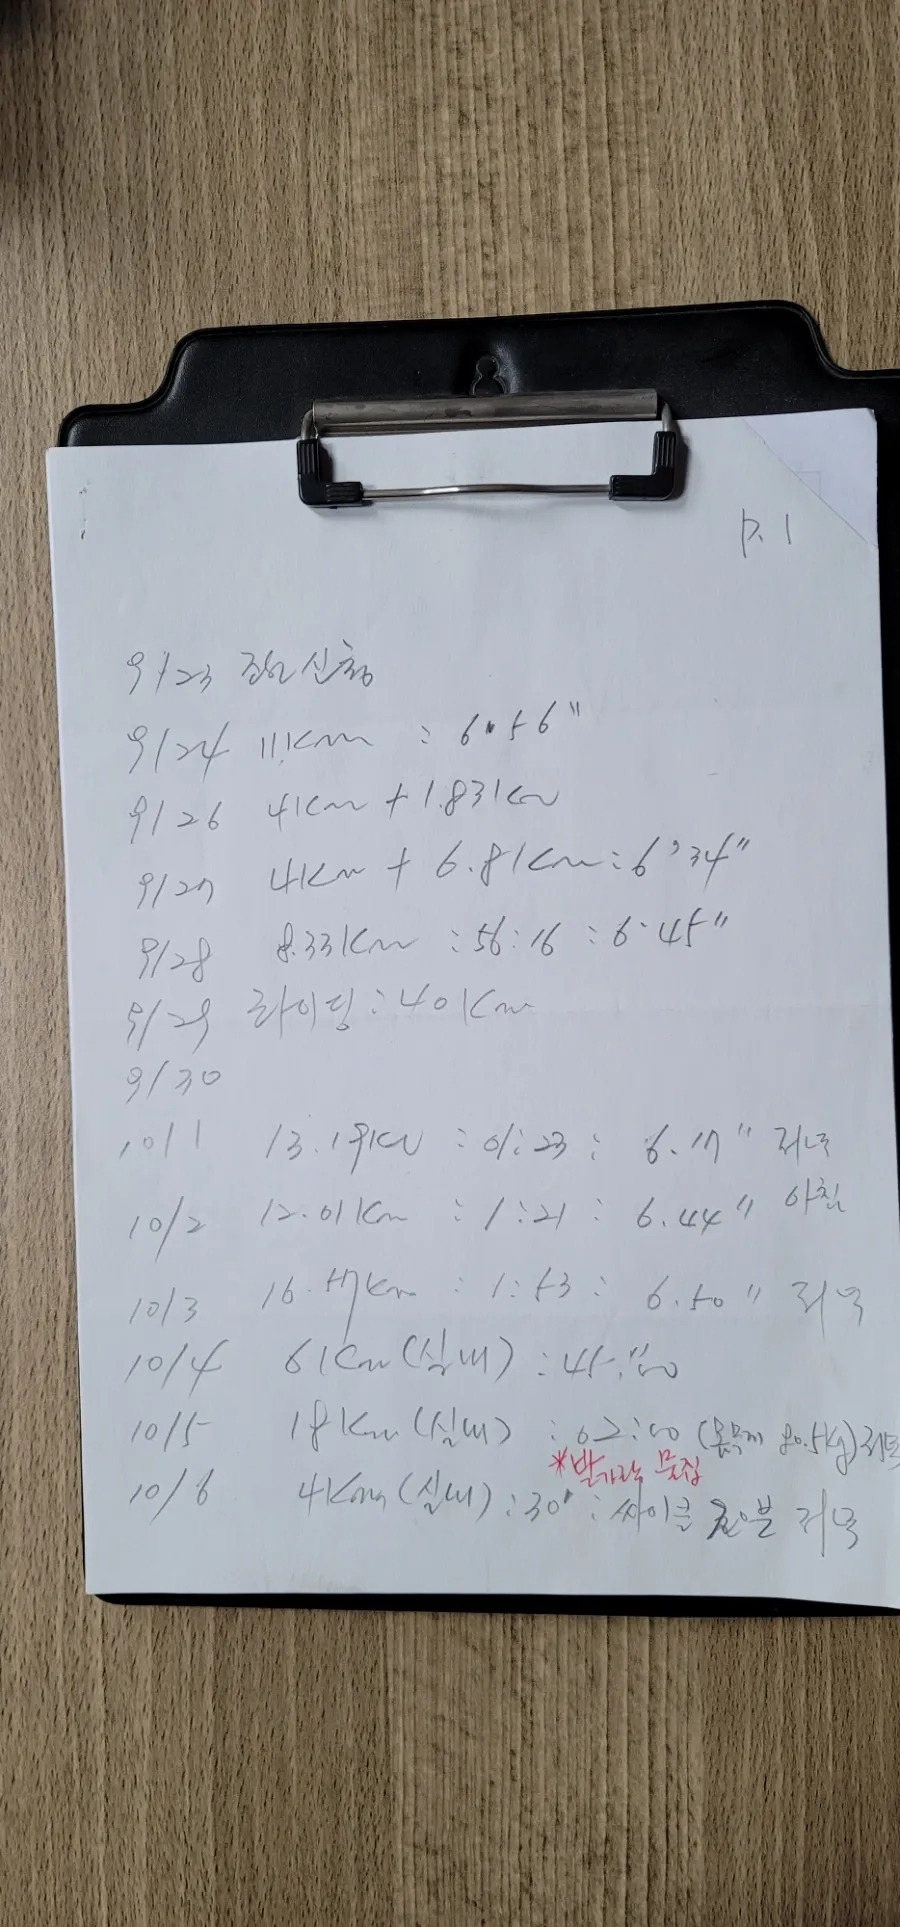 p.1
9/23 신청
9/24 11Km : 6.56"
9/26 4Km + 1.83Km
9/27 4Km + 6.8Km : 6'34"
9/28 8.33Km : 56:16 : 6.45"
9/29 라이딩 : 40Km
9/30
10/1 13.19Km : 01:23 : 6.17" 저녁
10/2 12.01Km : 1:21 : 6.44" 아침
10/3 16.57Km : 1:53 : 6.50" 저녁
10/4 6Km (실내) : 45.00
10/5 18Km (실내) : 02:00 (몸무게 80.5kg) 저녁
*발가락 물집
10/6 4Km (실내) : 30' : 싸이클 분 저녁